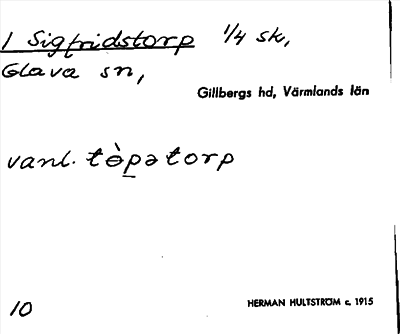 1 Sigfridstorp 1/4 sk,
Glava sn,
Gillbergs hd, Värmlands län
vanl. tò̱pətorp
10
HERMAN HULTSTRÖM c. 1915